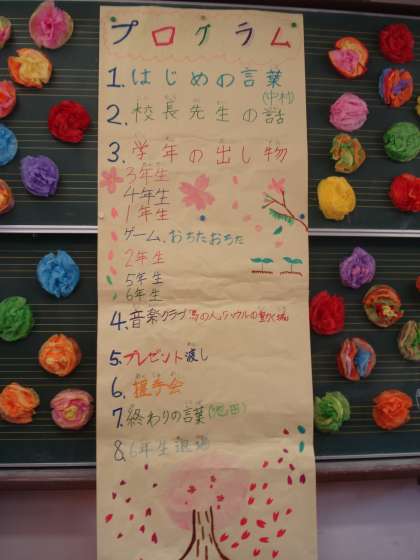 プログラム
1.はじめの言葉
(中村)
2.校長先生の話
3.学年の出し物
3年生
4年生
1年生
ゲーム、おちたおちた
2年生
5年生
6年生
4.音楽クラブ
ハウルの動く城
5.プレゼント渡し
6.握手会
7.終わりの言葉(池田)
8.6年生退場